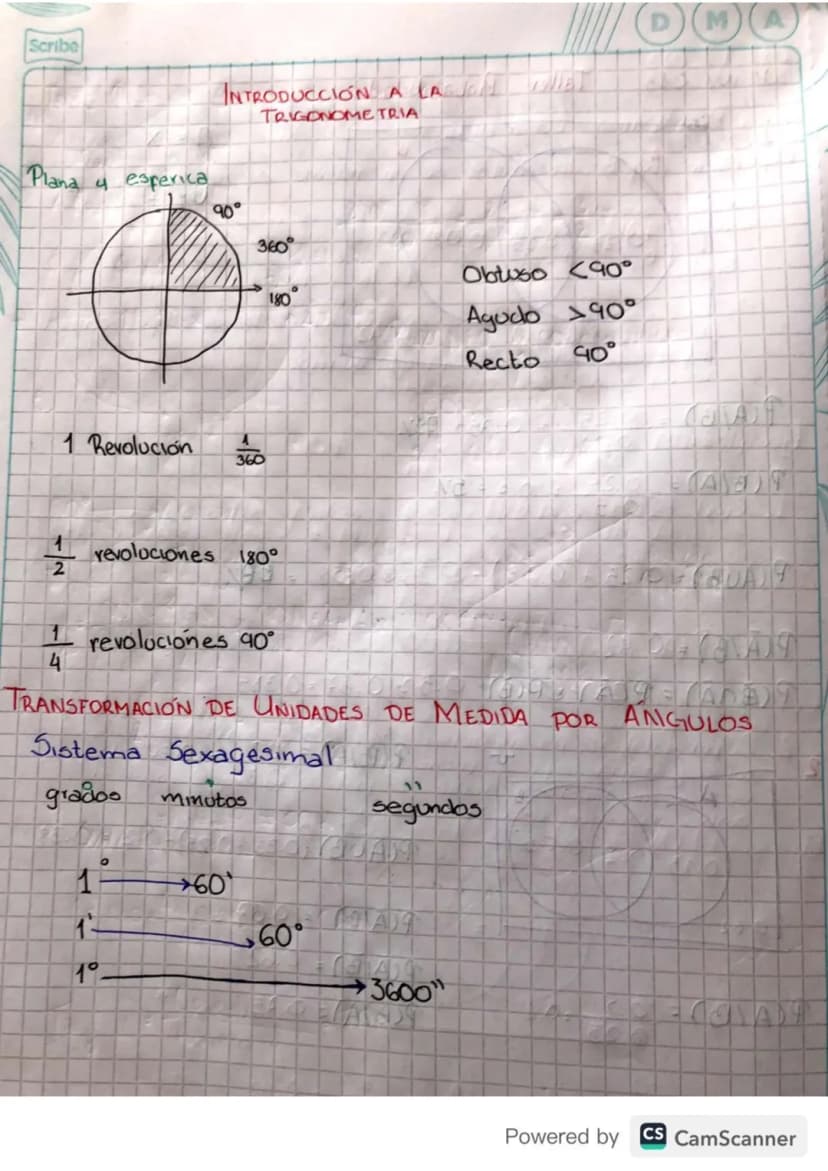 Scribe
D M A
INTRODUCCIÓN A LA
TRIGONOMETRIA
Plana y esperica
90°
360°
180°
Obtuso <90°
Agudo >90°
Recto 90°
1 Revolución 1/360
1/2 revoluciones 180°
1/4 revoluciones 90°
TRANSFORMACIÓN DE UNIDADES DE MEDIDA POR ÁNGULOS
Sistema Sexagesimal
° ' ''
grados minutos segundos
1° → 60'
1' → 60°
1° → 3600''
Powered by CS CamScanner